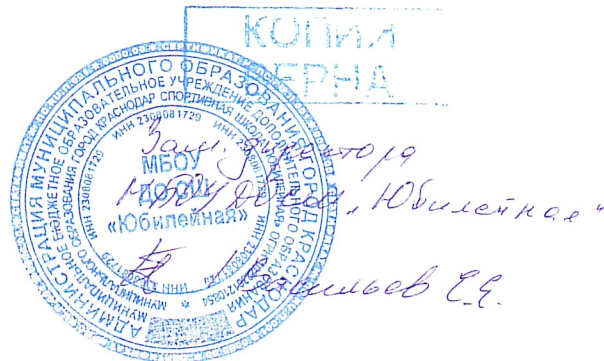 КОПИЯ
ВЕРНА
АДМИНИСТРАЦИЯ МУНИЦИПАЛЬНОГО ОБРАЗОВАНИЯ ГОРОД КРАСНОДАР
МУНИЦИПАЛЬНОЕ БЮДЖЕТНОЕ ОБРАЗОВАТЕЛЬНОЕ УЧРЕЖДЕНИЕ ДОПОЛНИТЕЛЬНОГО ОБРАЗОВАНИЯ
МУНИЦИПАЛЬНОГО ОБРАЗОВАНИЯ ГОРОД КРАСНОДАР СПОРТИВНАЯ ШКОЛА «ЮБИЛЕЙНАЯ»
ИНН 2308081729 ИНН
МБОУ
ДО СШ
«Юбилейная»
Зам. директора
МБОУ ДО СШ „Юбилейная"
Васильев Е.Е.